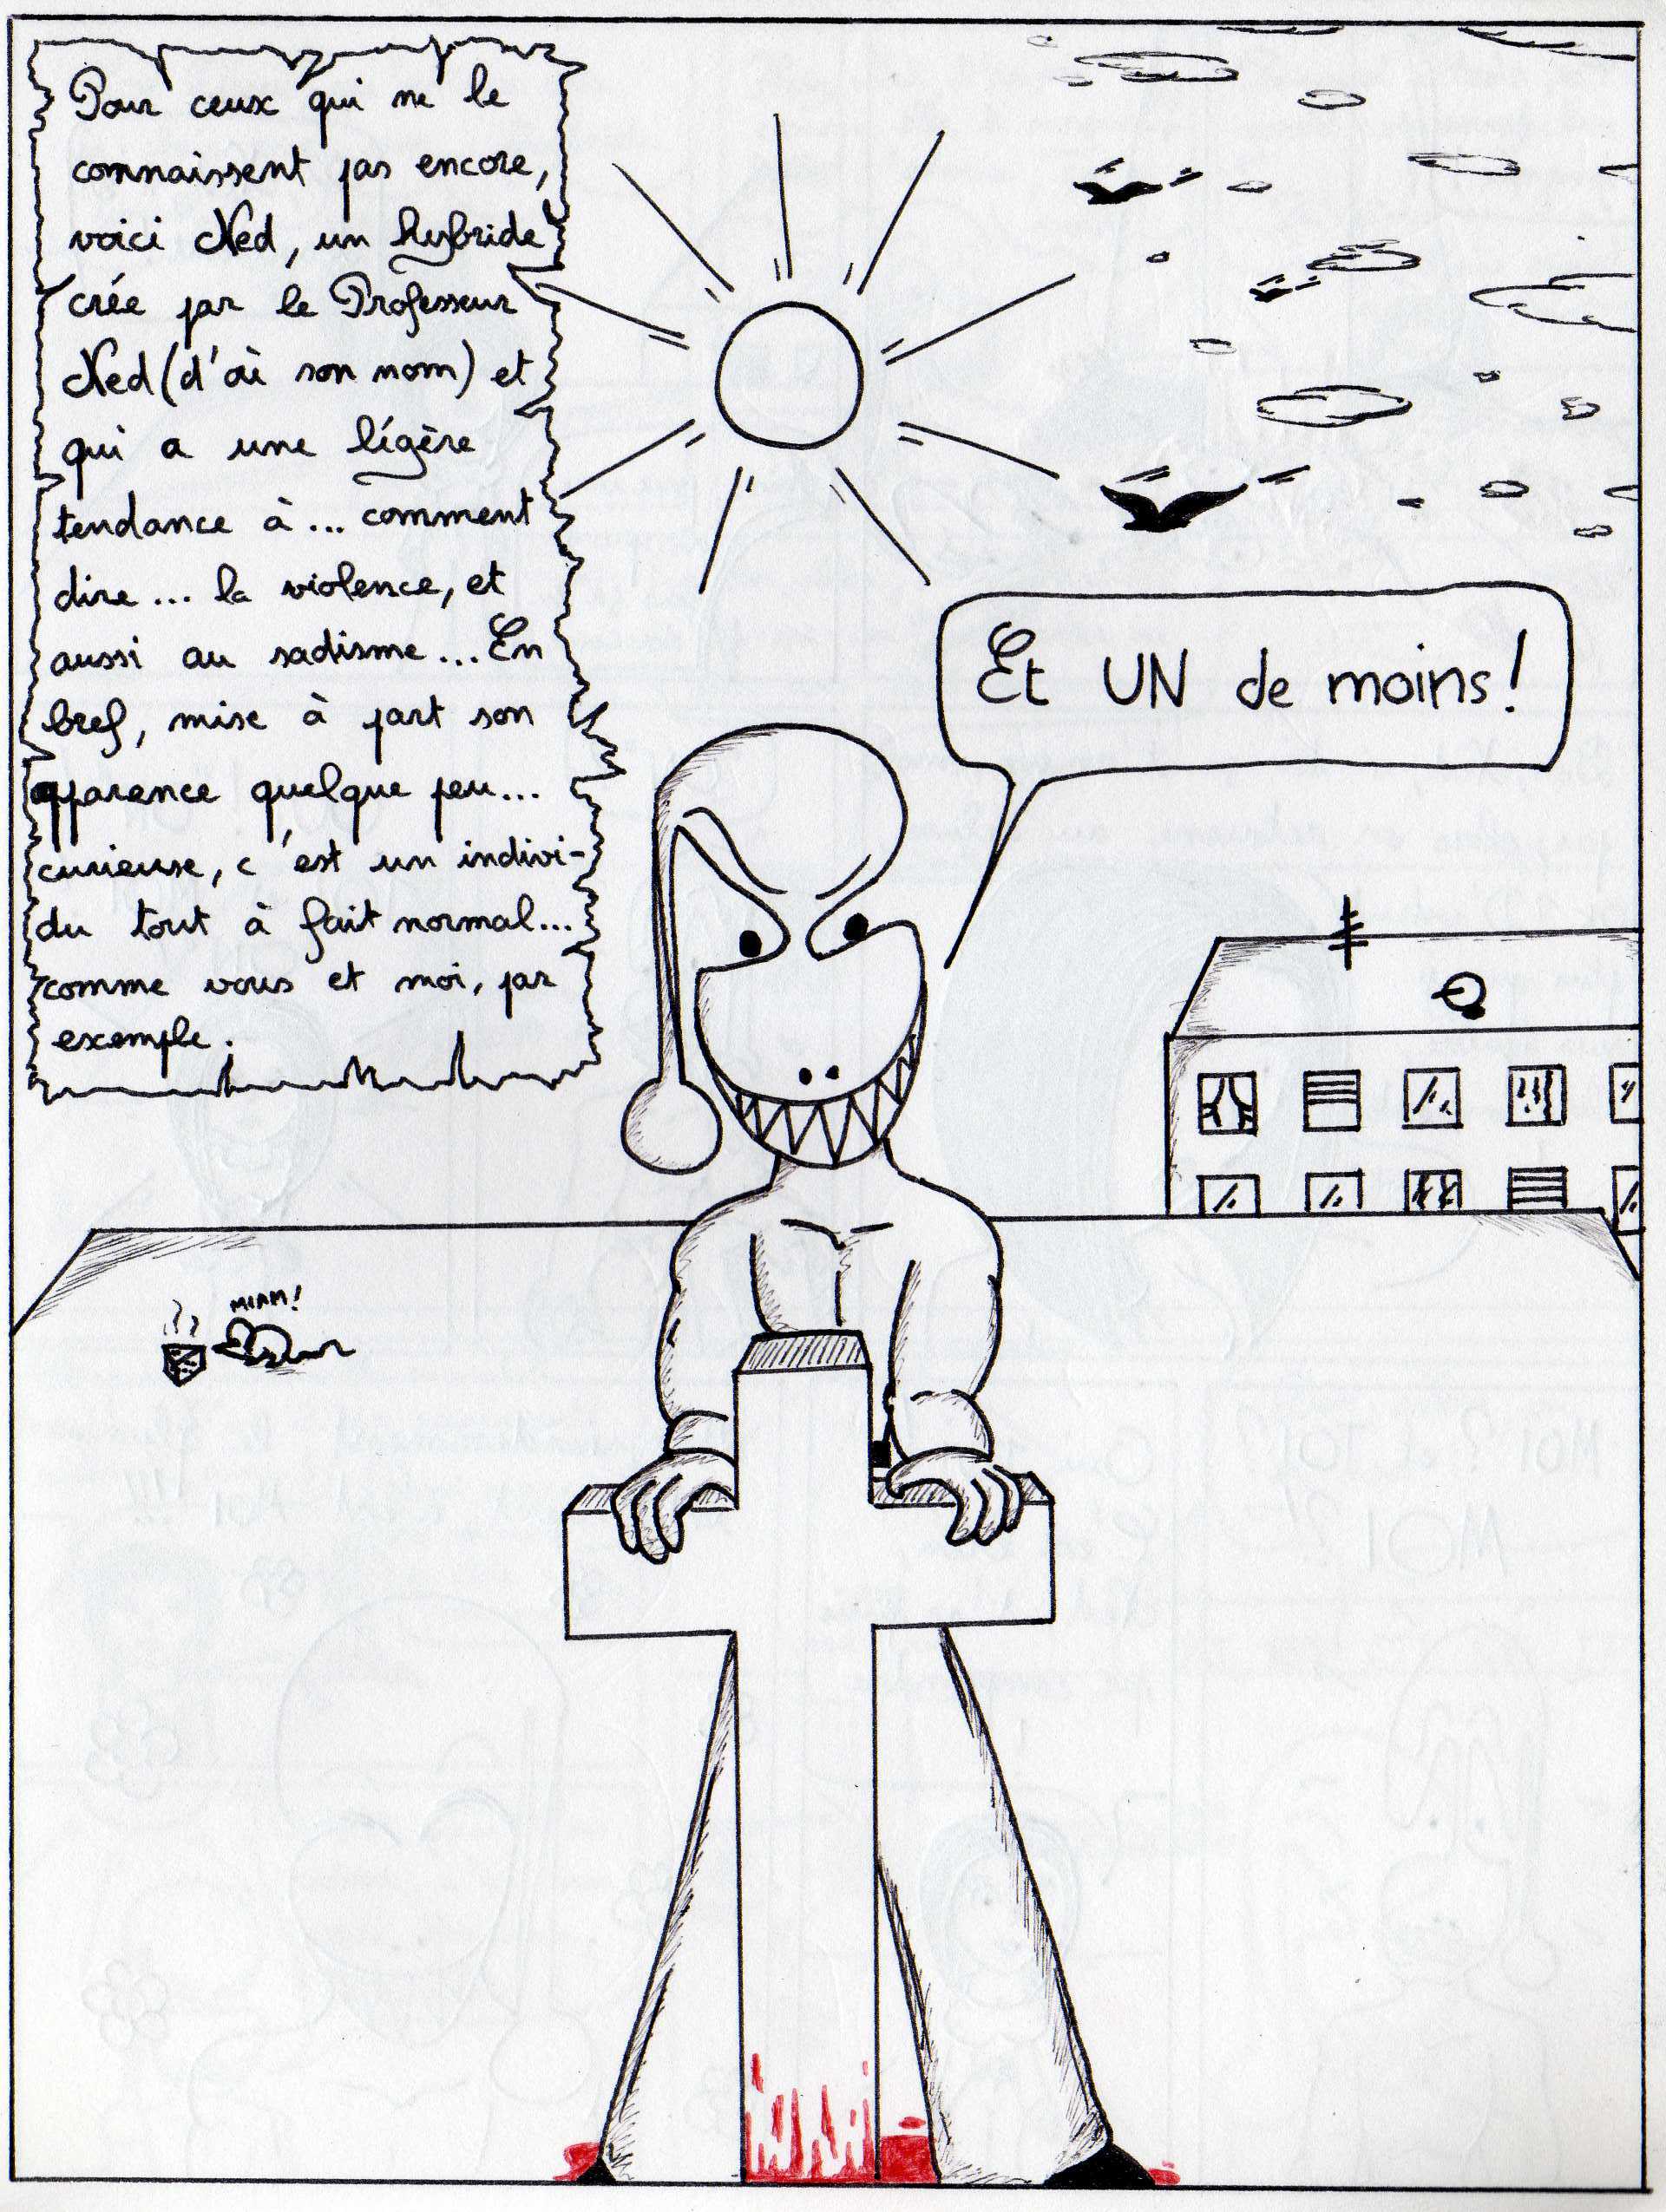 Pour ceux qui ne le
connaissent pas encore,
voici Ned, un hybride
crée par le Professeur
Ned (d'où son nom) et
qui a une légère
tendance à... comment
dire... la violence, et
aussi au sadisme... En
bref, mise à part son
apparence quelque peu...
curieuse, c'est un indivi-
du tout à fait normal...
comme vous et moi, par
exemple.
Et UN de moins!
MIAM!